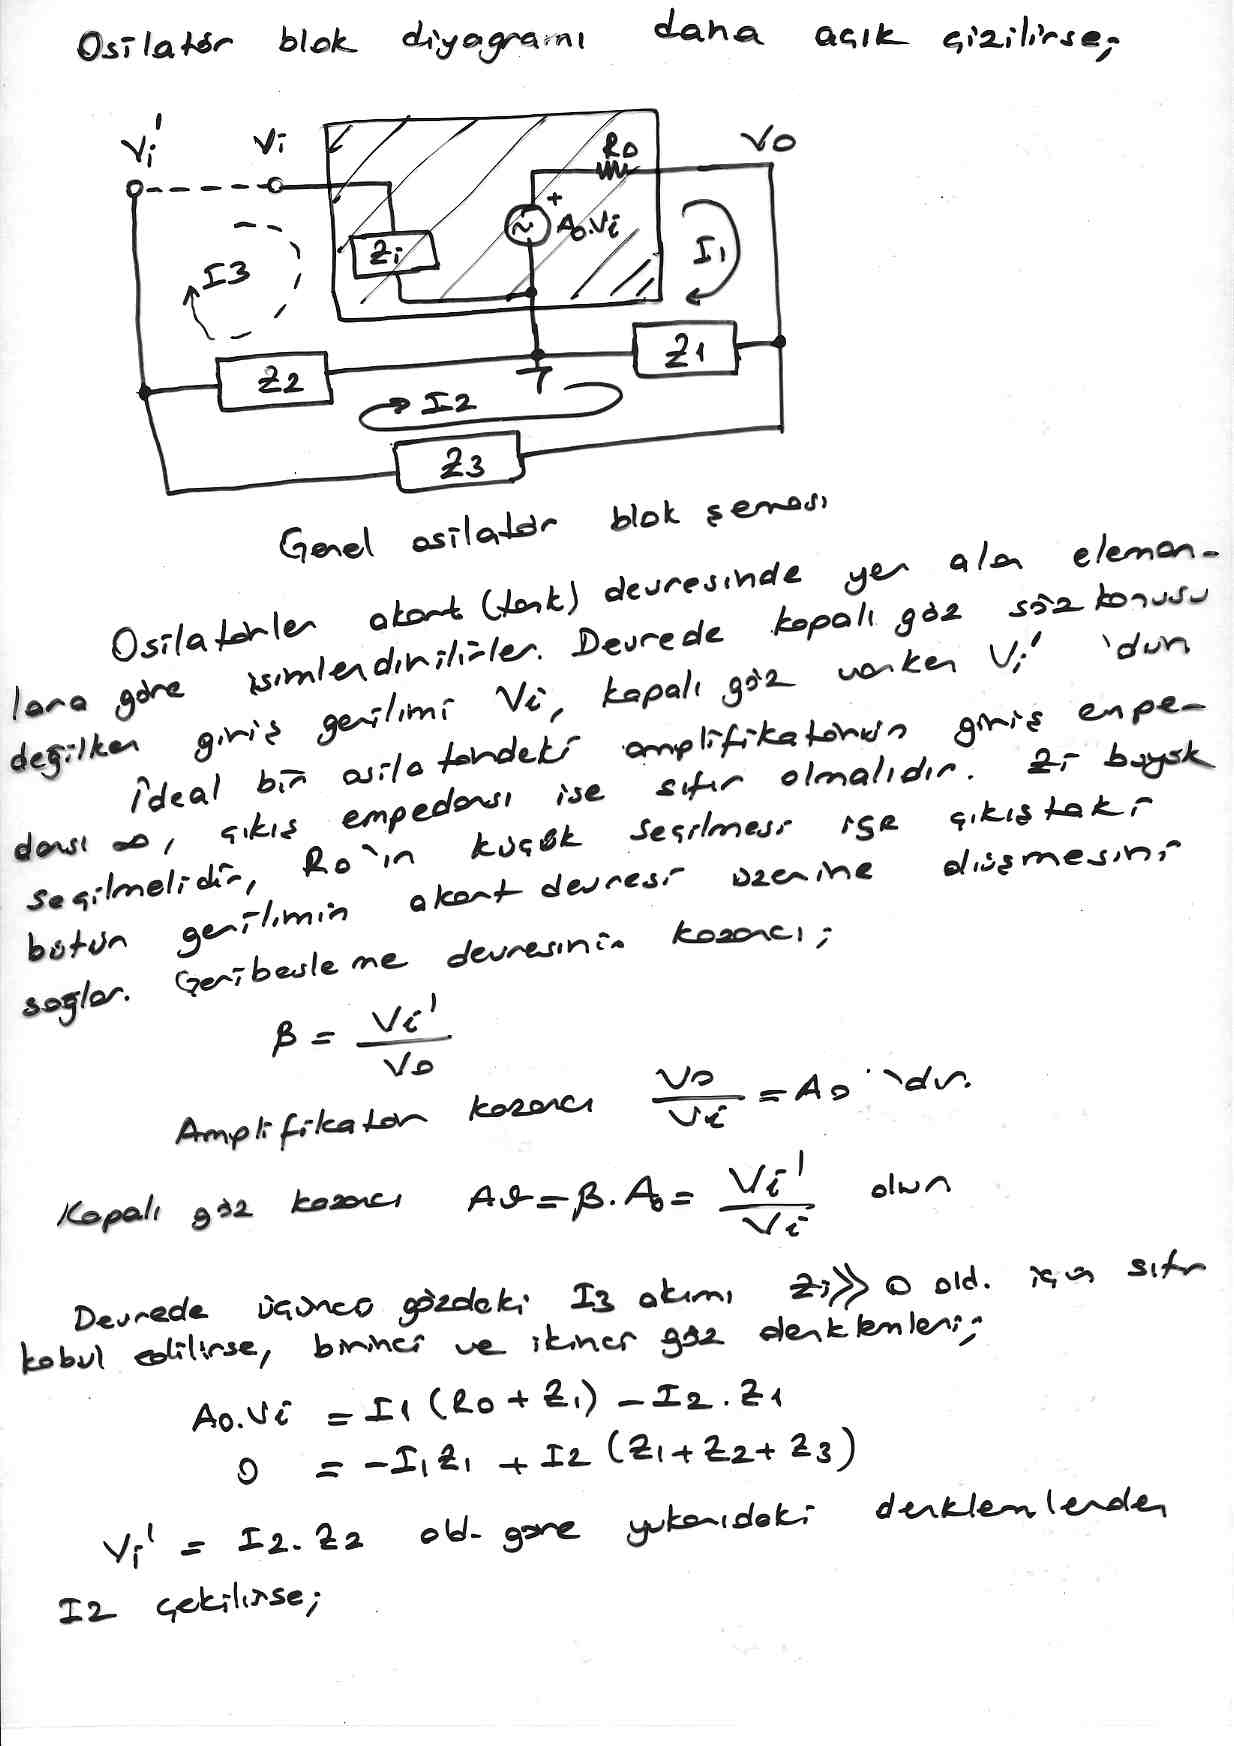 Osilatör blok diyagramı daha açık çizilirse;
Vi' Vi Ro Vo
+
A0.Vi
Zi
I3 I1
Z1
Z2
I2
Z3
Genel osilatör blok şeması
Osilatörler akort (tank) devresinde yer alan eleman-
lara göre isimlendirilirler. Devrede kapalı göz söz konusu
değilken giriş gerilimi Vi, kapalı göz varken Vi' 'dür.
İdeal bir osilatördeki amplifikatörün giriş empe-
dansı ∞, çıkış empedansı ise sıfır olmalıdır. Zi büyük
seçilmelidir, Ro'ın küçük seçilmesi ise çıkıştaki
bütün gerilimin akort devresi üzerine düşmesini
sağlar. Geribesleme devresinin kazancı;
β = Vi' / Vo
Amplifikatör kazancı Vo / Vi = Ao 'dır.
Kapalı göz kazancı Aϑ = β. Ao = Vi' / Vi olur
Devrede üçüncü gözdeki I3 akımı Zi≫0 old. için sıfır
kabul edilirse, birinci ve ikinci göz denklemleri;
Ao.Vi = I1 (Ro + Z1) - I2 . Z1
0 = -I1Z1 + I2 (Z1 + Z2 + Z3)
Vi' = I2. Z2 old- göre yukarıdaki denklemlerden
I2 çekilirse;